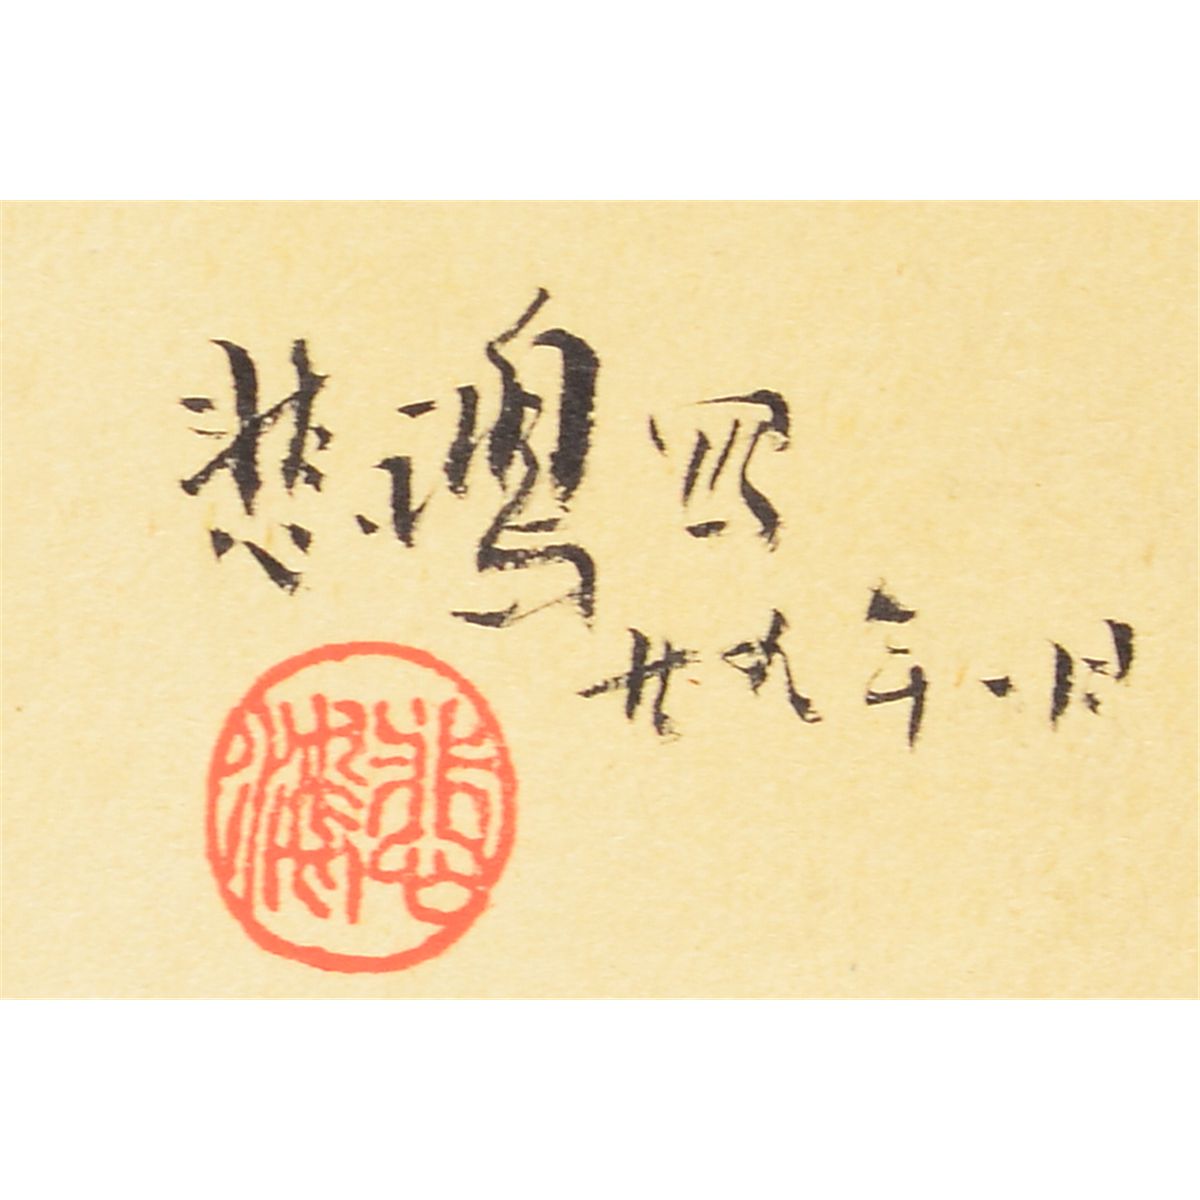 悲鴻
廿九年一月
悲鴻